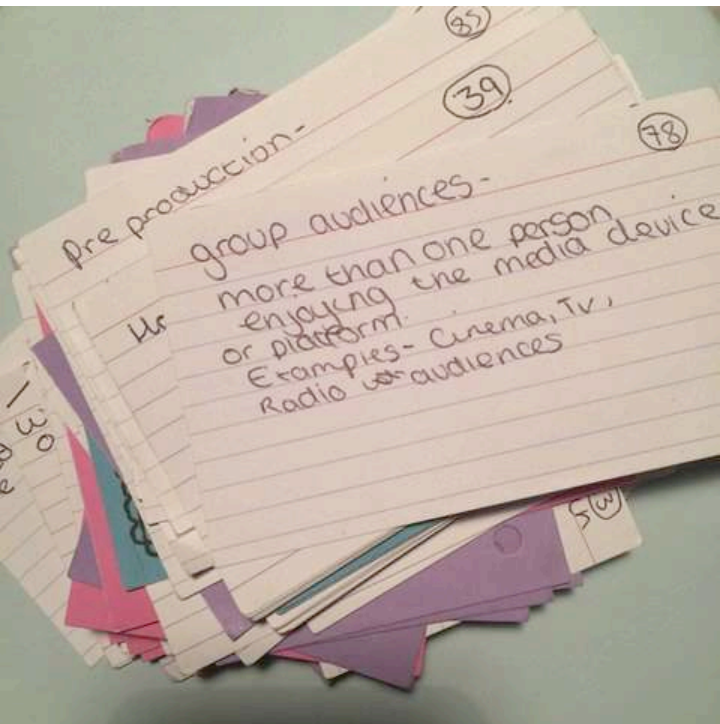 85
39
pre production-
78
group audiences-
more than one person
enjoying the media device
or platform.
Examples- Cinema, TV,
Radio audiences
30
3